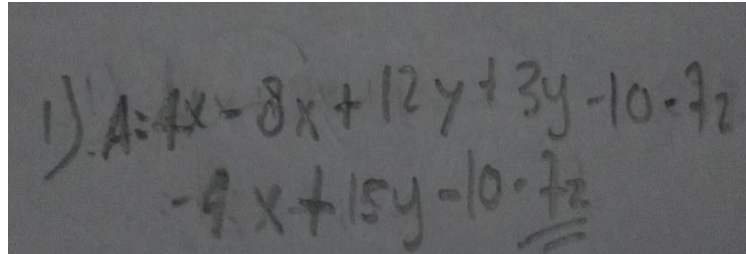 1). A = 4x - 8x + 12y + 3y - 10 - 7z
-4x + 15y - 10 - 7z